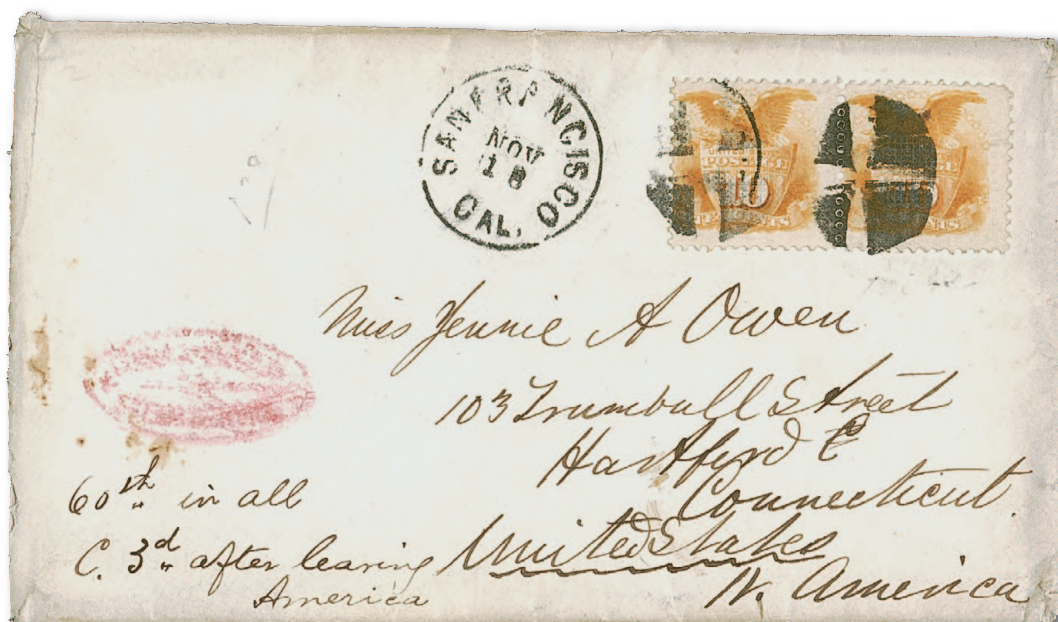 SAN FRANCISCO
NOV
18
CAL.
POSTAGE
10
TEN CENTS
Miss Jennie A Owen
103 Trumbull Street
Hartford C
Connecticut.
United States
N. America
60th in all
C. 3d after leaving
America